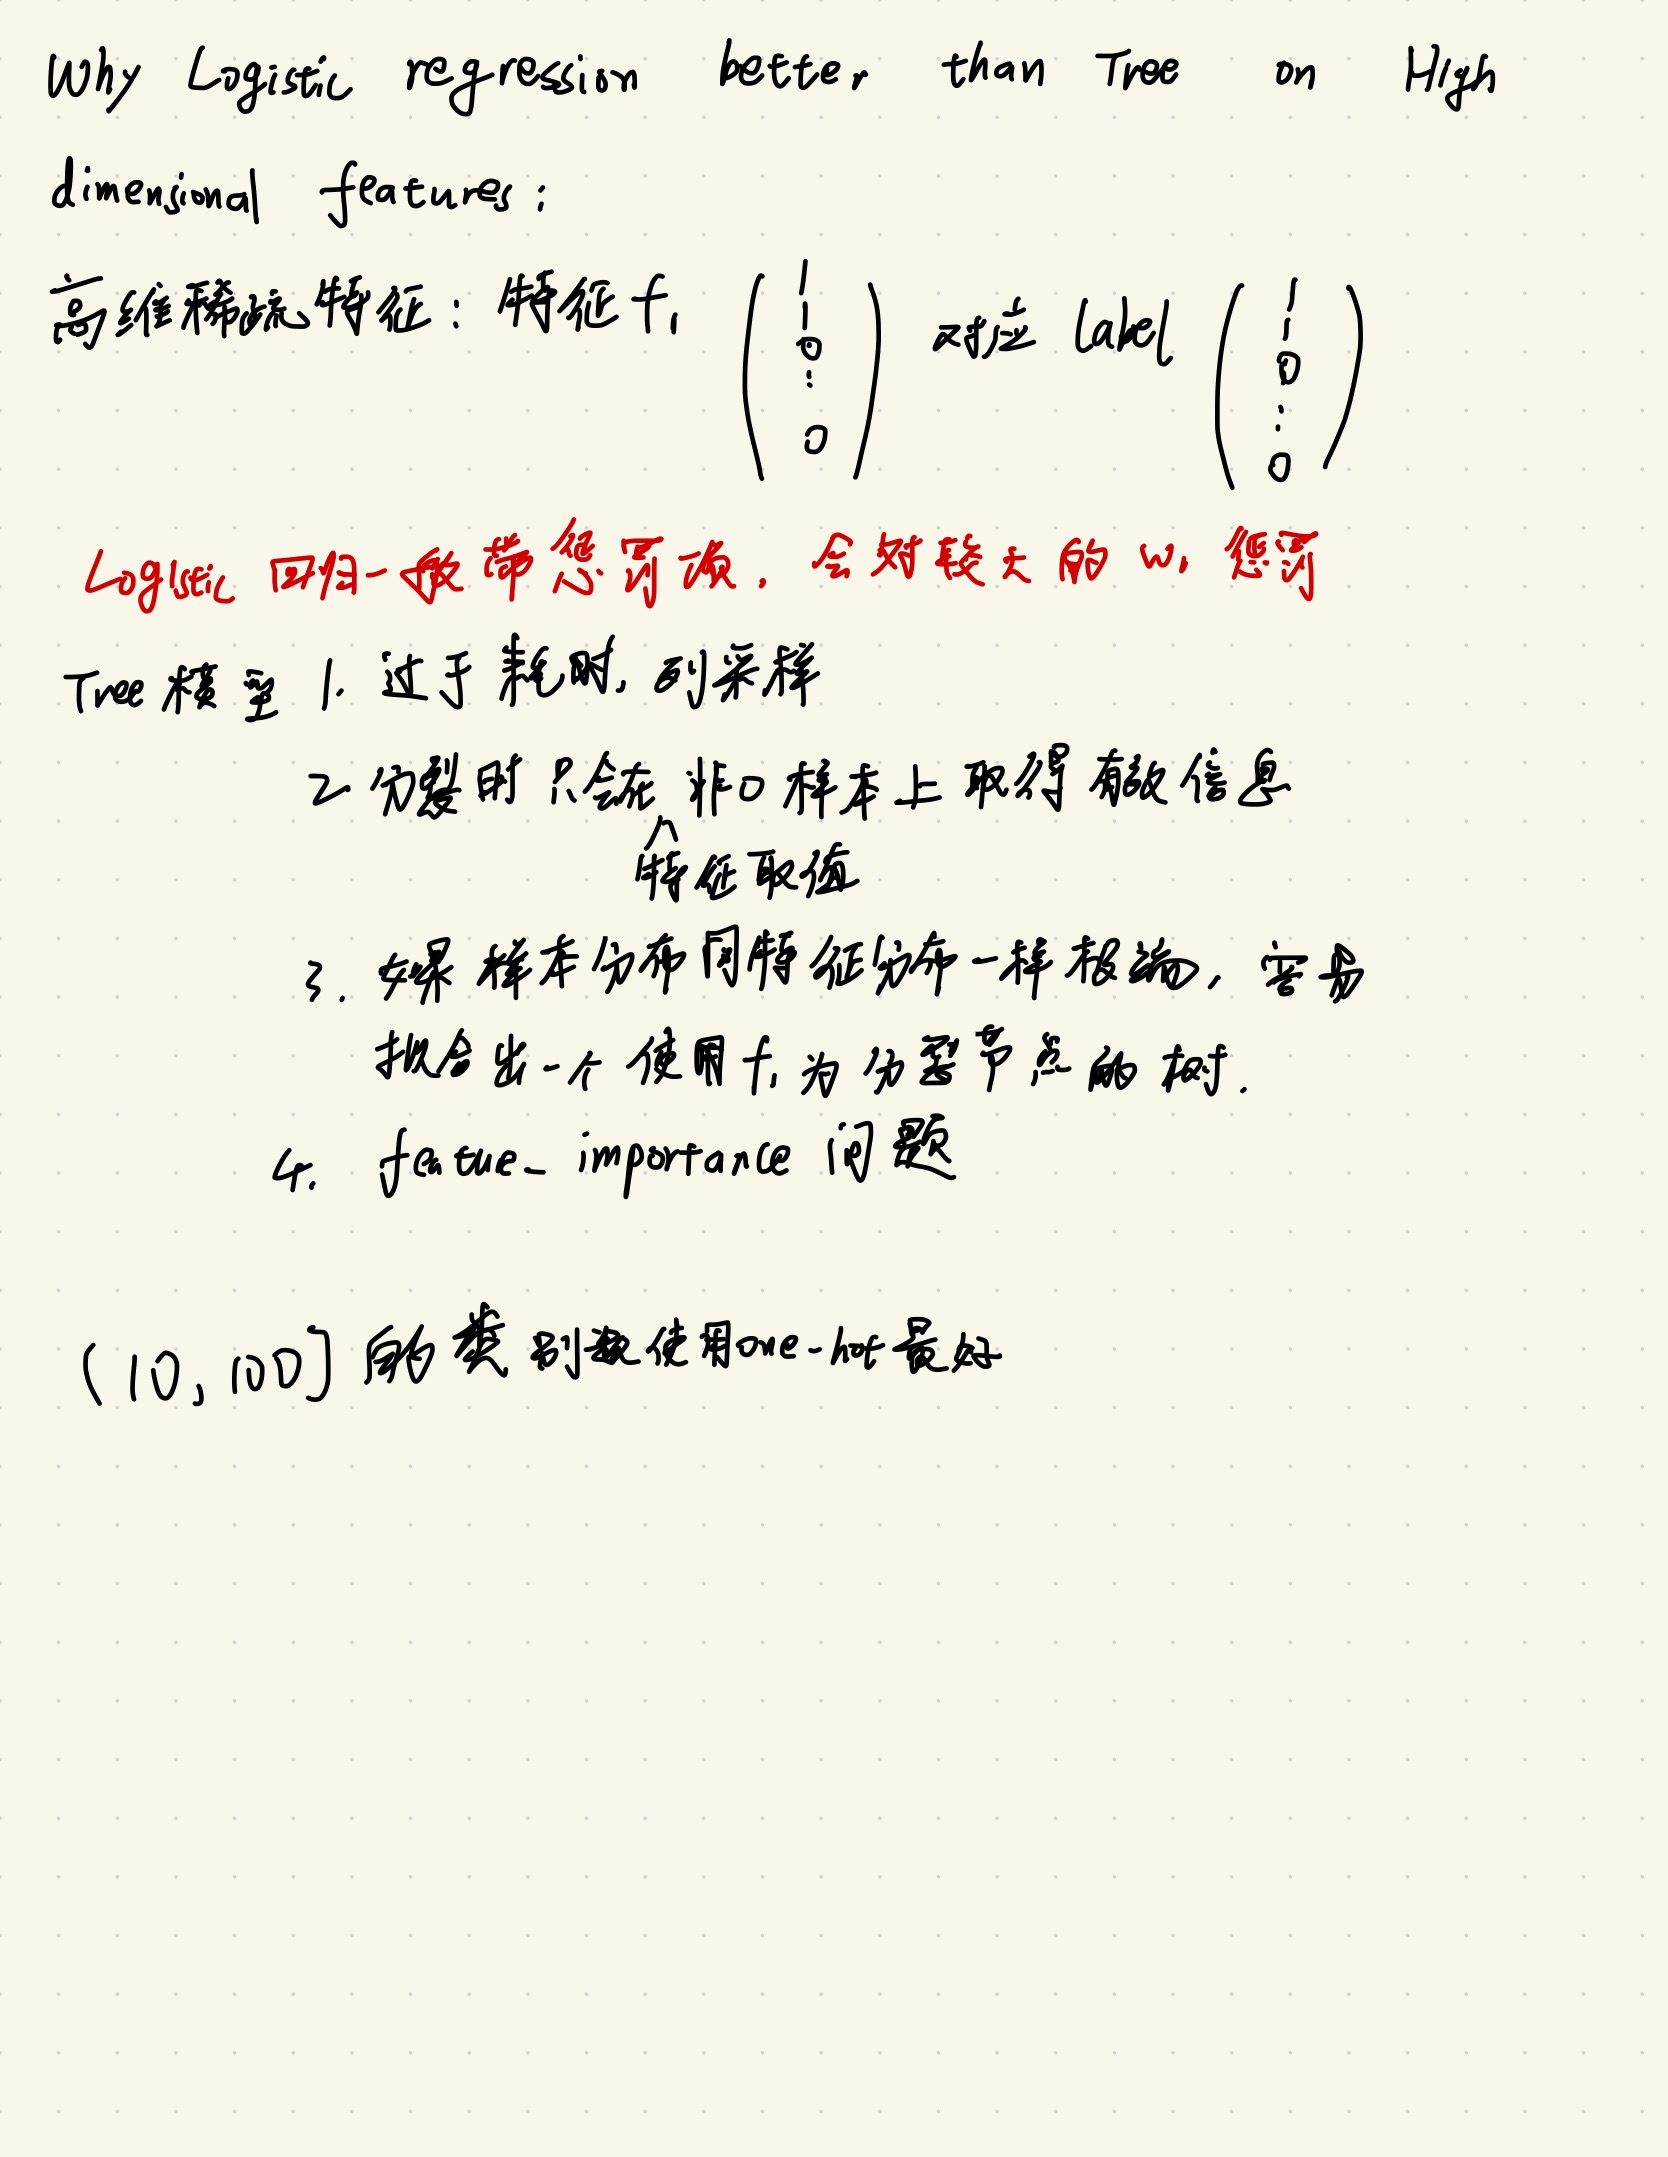 Why Logistic regression better than Tree on High
dimensional features:
高维稀疏特征: 特征f₁ (1 1 0 ⋮ 0) 对应 label (1 1 0 ⋮ 0)
Logistic 回归一般带惩罚项, 会对较大的 w₁ 惩罚
Tree模型 1. 过于耗时, 列采样
2 分裂时只会在 非0 样本上取得有效信息
^特征取值
3. 如果样本分布同特征分布一样极端, 容易
拟合出一个使用f₁为分裂节点的树.
4. featue_importance 问题
(10, 100] 的类别数使用one-hot最好